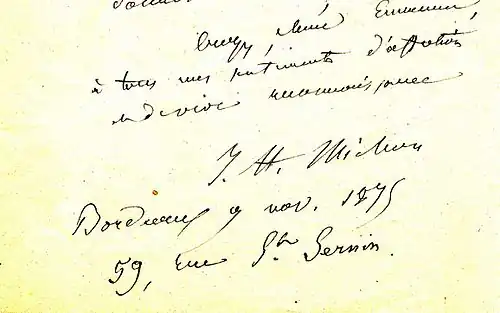 Croyez, chère Emilienne,
à tous mes sentiments d'affection
et de vive reconnaissance
J. H. Michon
Bordeaux 9 nov. 1875
59, rue St Sernin.